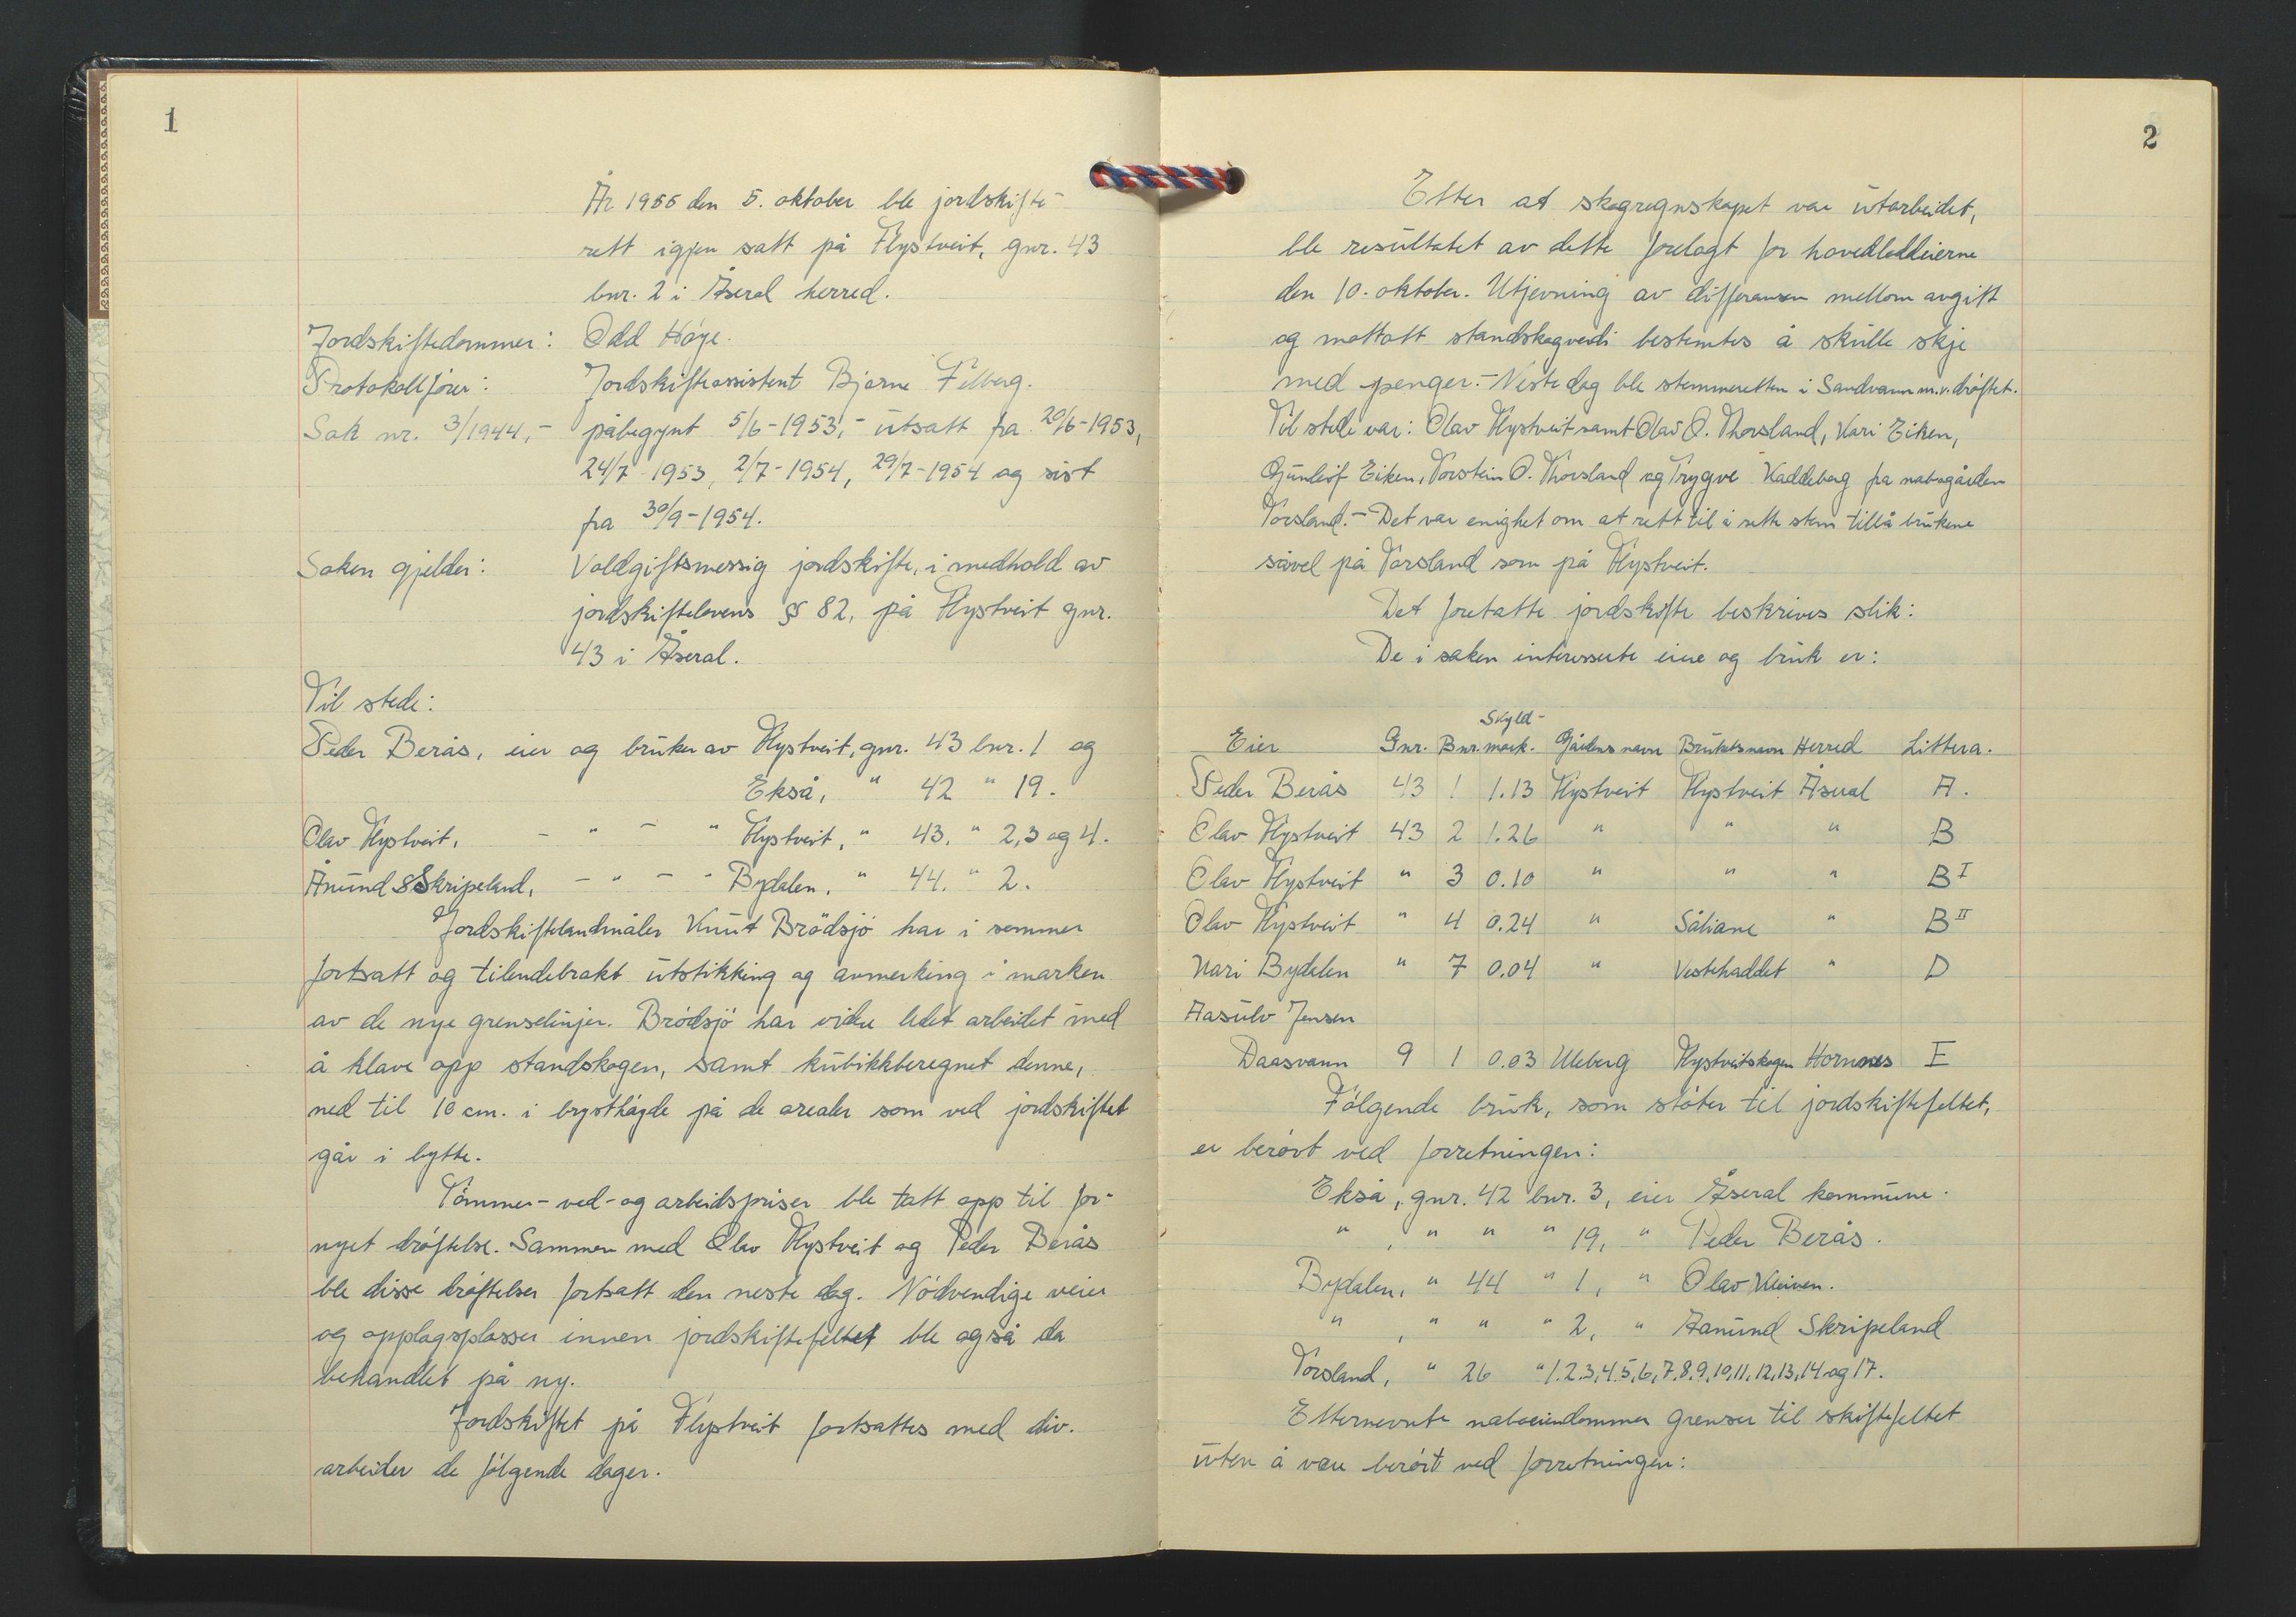 1
År 1955 den 5. oktober ble jordskifte-
rett igjen satt på Flystveit, gnr. 43
bnr. 2 i Åseral herred.
Jordskiftedommer: Odd Høye.
Protokollfører: Jordskifteassistent Bjarne Felberg.
Sak nr. 3/1944,- påbegynt 5/6-1953,- utsatt fra 20/6-1953,
24/7-1953, 2/7-1954, 29/7-1954 og sist
fra 30/9-1954.
Saken gjelder: Voldgiftsmessig jordskifte, i medhold av
jordskiftelovens § 82, på Flystveit gnr.
43 i Åseral.
Til stede:
Peder Berås, eier og bruker av Flystveit, gnr. 43 bnr. 1 og
Ekså, " 42 " 19.
Olav Flystveit, - " - " Flystveit, " 43, " 2,3 og 4.
Ånund S Skripeland, - " - " Bydalen, " 44. " 2.
Jordskiftelandmåler Knut Brødsjø har i sommer
fortsatt og tilendebrakt utstikking og avmerking i marken
av de nye grenselinjer. Brødsjø har videre ledet arbeidet med
å klave opp standskogen, samt kubikkberegnet denne,
ned til 10 cm. i brysthøgde på de arealer som ved jordskiftet
går i bytte.
Tømmer- ved- og arbeidspriser ble tatt opp til for-
nyet drøftelse. Sammen med Olav Flystveit og Peder Berås
ble disse drøftelser fortsatt den neste dag. Nødvendige veier
og opplagsplasser innen jordskiftefeltet ble også da
behandlet på ny.
Jordskiftet på Flystveit fortsattes med div.
arbeider de følgende dager.
2
Etter at skogregnskapet var utarbeidet,
ble resultatet av dette forelagt for hovedloddeierne
den 10. oktober. Utjevning av differansen mellom avgitt
og mottatt standskogverdi bestemtes å skulle skje
med penger.- Neste dag ble stemmeretten i Sandvann m.v. drøftet.
Til stede var: Olav Flystveit samt Olav O. Thorsland, Kari Eiken,
Gunleif Eiken, Torstein O. Thorsland og Trygve Kaddeberg fra nabogården
Torsland.- Det var enighet om at rett til å sette stem tillå brukene
såvel på Torsland som på Flystveit.
Det foretatte jordskifte beskrives slik:
De i saken interesserte eiere og bruk er:
Eier Gnr. Bnr. Skyld-mark. Gårdens navn Bruketsnavn Herred Littera.
Peder Berås 43 1 1.13 Flystveit Flystveit Åseral A.
Olav Flystveit 43 2 1.26 " " " B
Olav Flystveit " 3 0.10 " " " B I
Olav Flystveit " 4 0.24 " Såliane " B II
Kari Bydalen " 7 0.04 " Vestehaddet " D
Aasulv Jensen
Daasvann 9 1 0.03 Uleberg Flystveitskogen Hornnes E
Følgende bruk, som støter til jordskiftefeltet,
er berørt ved forretningen:
Ekså, gnr. 42 bnr. 3, eier Åseral kommune.
" , " " " 19, " Peder Berås.
Bydalen, " 44 " 1, " Olav Kleiven.
" , " " " 2, " Aanund Skripeland
Torsland, " 26 " 1.2.3,4.5,6,7.8.9,10,11,12,13,14 og 17.
Etternevnte naboeiendommer grenser til skiftefeltet
uten å være berørt ved forretningen: